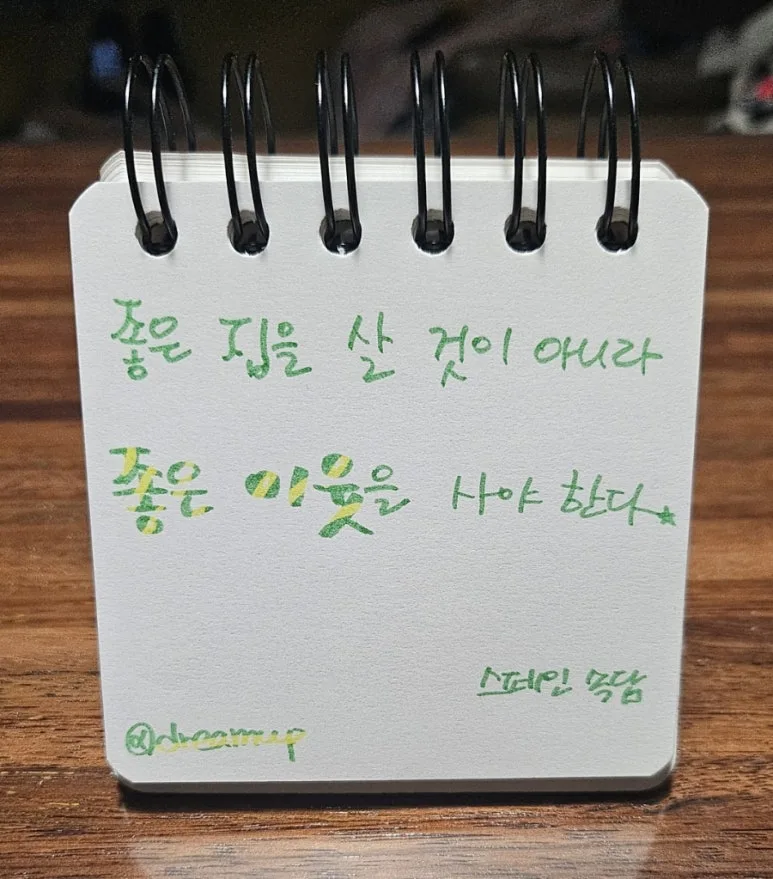 좋은 집을 살 것이 아니라
좋은 이웃을 사야 한다
스페인 속담
@dreamup